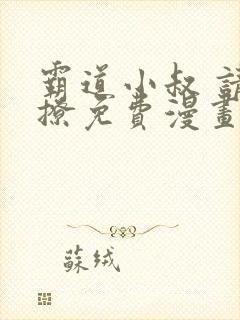 霸道小叔 請
撩免費漫畫
蘇絨